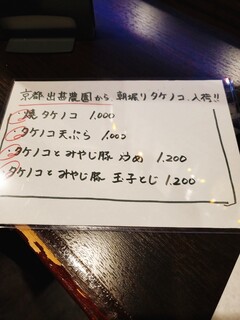 京都 出苔農園から 朝堀りタケノコ 入荷!!
・焼タケノコ 1.000
・タケノコ天ぷら 1.000
・タケノコとみやじ豚 炒め 1.200
・タケノコとみやじ豚 玉子とじ 1.200